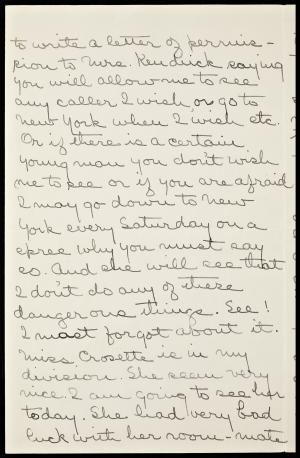 to write a letter of permis-
sion to Mrs. Kendrick saying
you will allow me to see
any caller I wish or go to
New York when I wish etc.
Or if there is a certain
young man you don't wish
me to see or if you are afraid
I may go down to New
York every Saturday on a
spree why you must say
so. And she will see that
I don't do any of these
dangerous things. See!
I most forgot about it.
Miss Crosette is in my
division. She seems very
nice. I am going to see her
today. She had very bad
luck with her room-mate